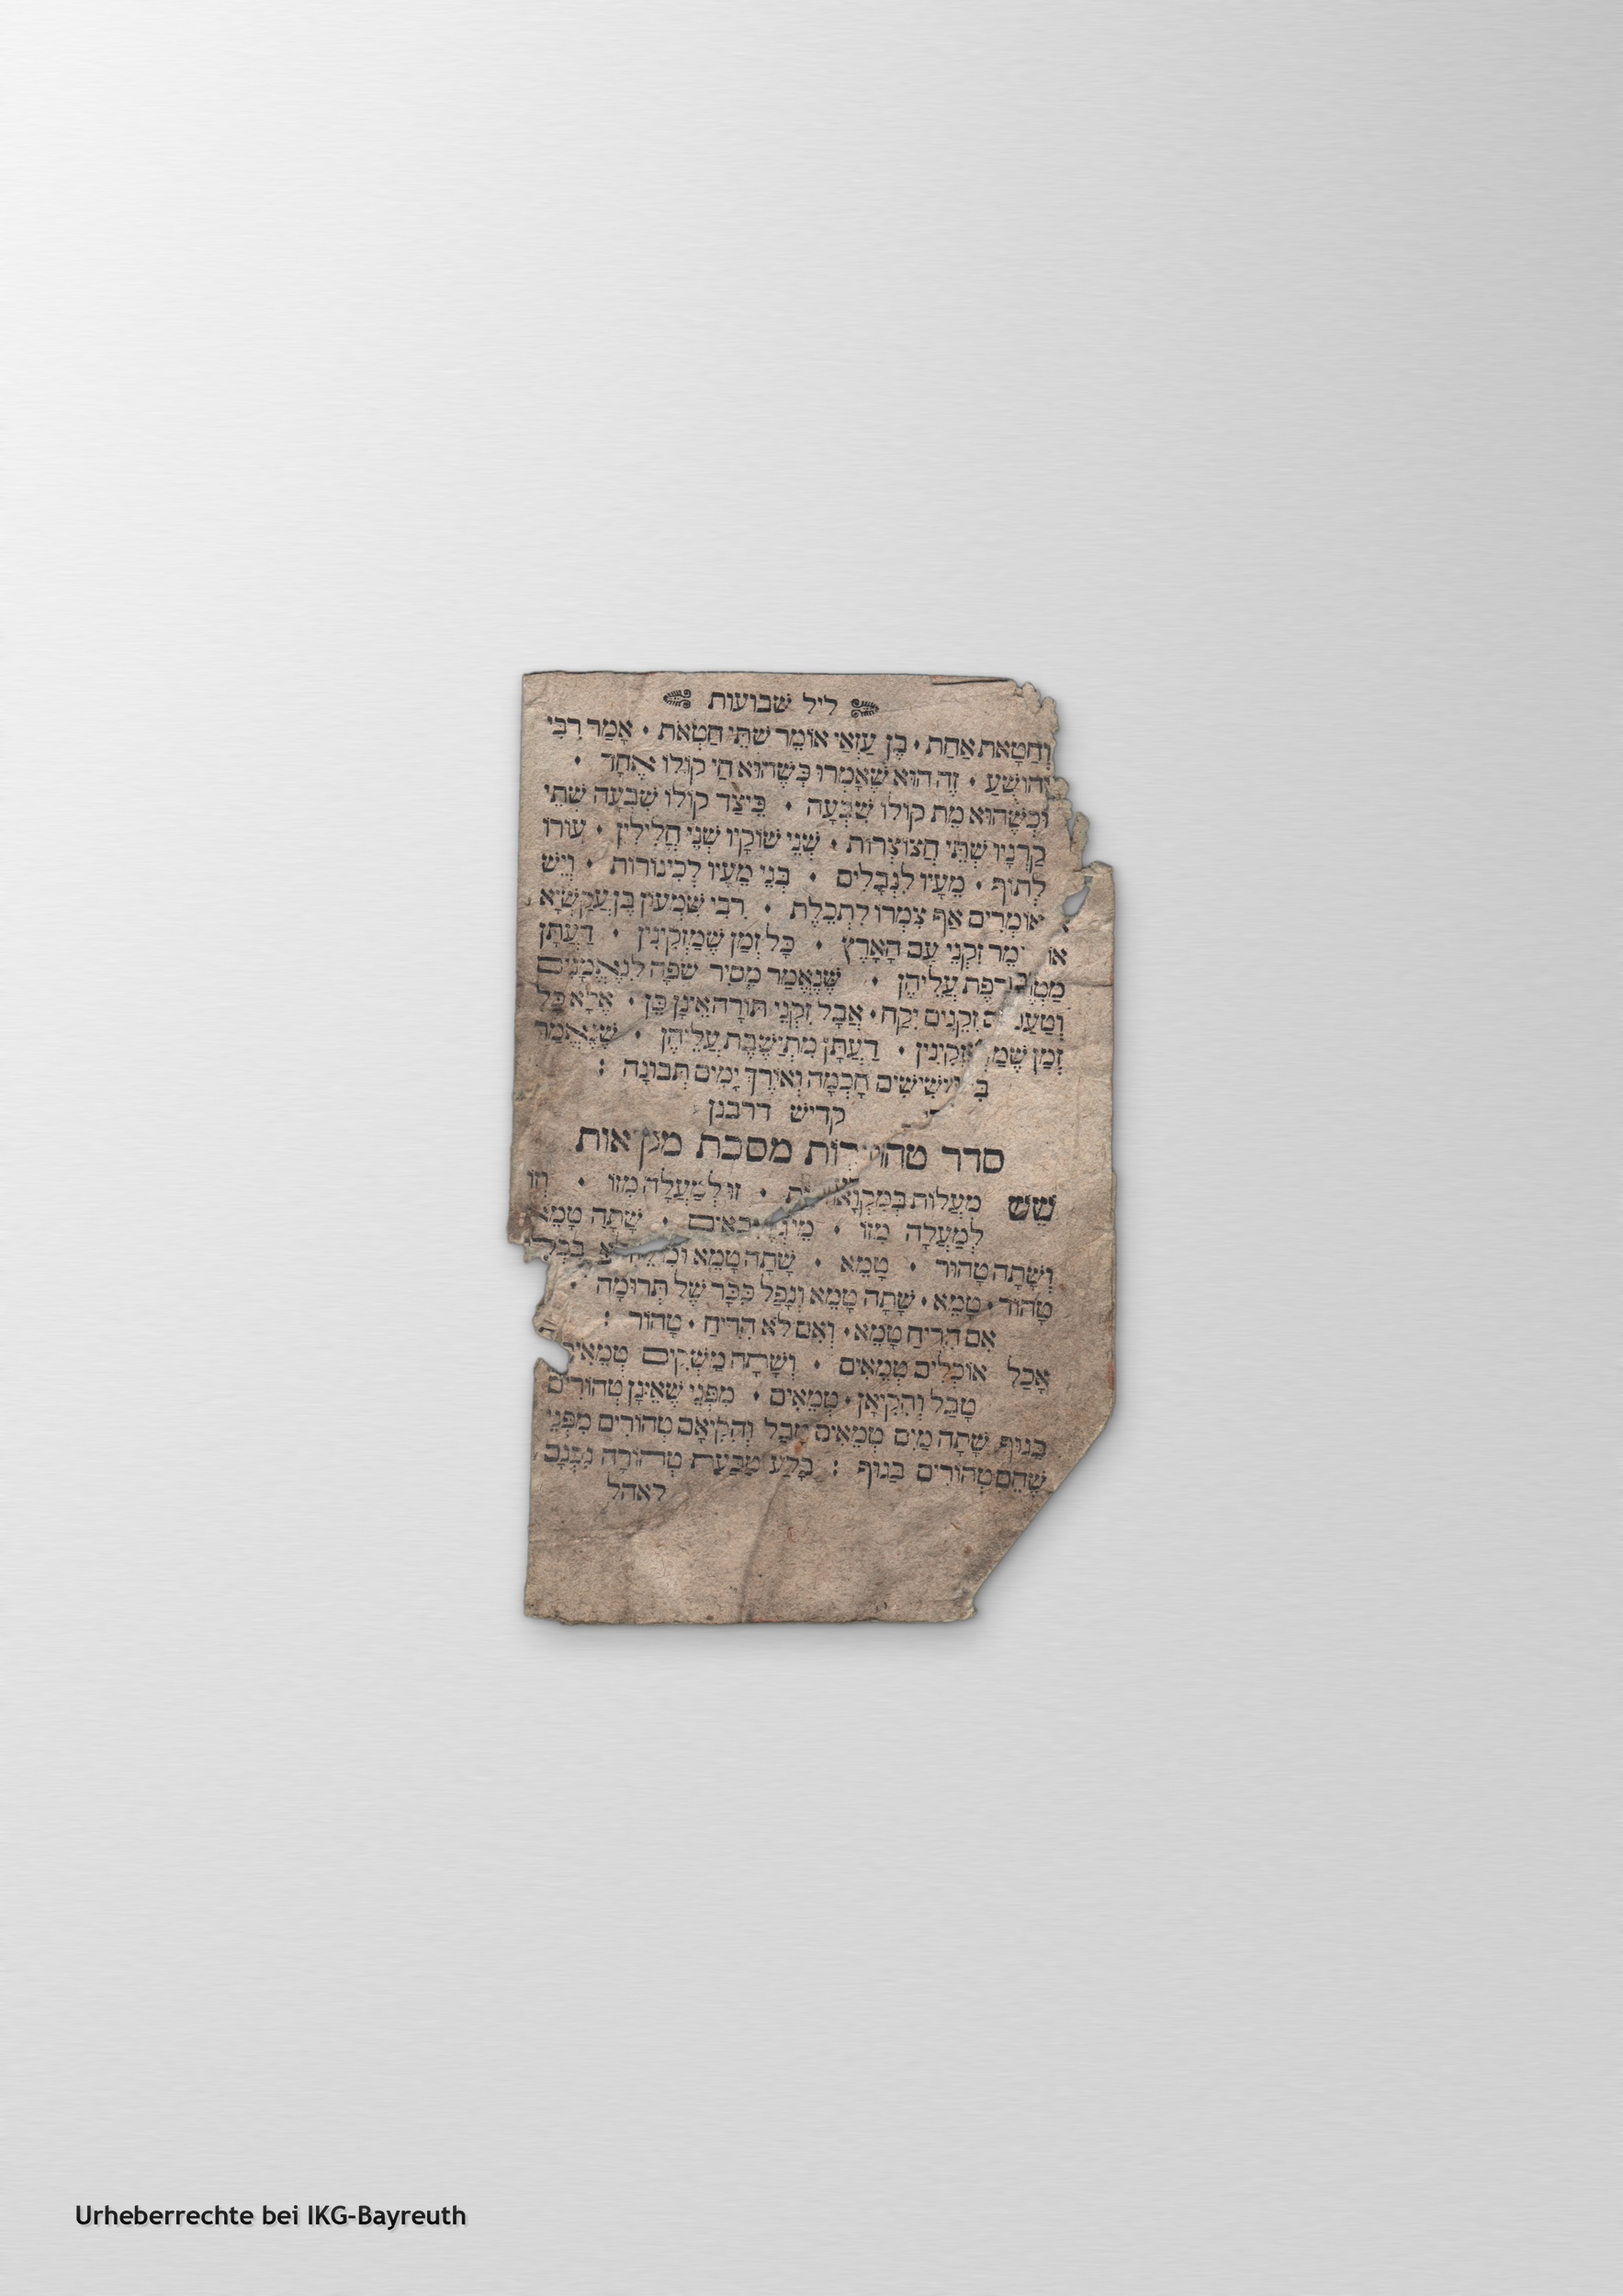 ליל שבועות
וְחַטָּאת אַחַת • בֶּן עַזַּאי אוֹמֵר שְׁתֵּי חַטָּאֹת • אָמַר רַבִּי
יְהוֹשֻׁעַ • זֶה הוּא שֶׁאָמְרוּ כְּשֶׁהוּא חַי קוֹלוֹ אֶחָד •
וּכְשֶׁהוּא מֵת קוֹלוֹ שִׁבְעָה • כֵּיצַד קוֹלוֹ שִׁבְעָה שְׁתֵּי
קַרְנָיו שְׁתֵּי חֲצוֹצְרוֹת • שְׁנֵי שׁוֹקָיו שְׁנֵי חֲלִילִין • עוֹרוֹ
לְתוֹף • מֵעָיו לִנְבָלִים • בְּנֵי מֵעָיו לְכִינוֹרוֹת • וְיֵשׁ
אוֹמְרִים אַף צַמְרוֹ לִתְכֵלֶת • רַבִּי שִׁמְעוֹן בֶּן עֲקַשְׁיָא
זִקְנֵי עַם הָאָרֶץ • כָּל זְמַן שֶׁמַּזְקִינִין • דַּעְתָּן
עֲלֵיהֶן • שֶׁנֶּאֱמַר מֵסִיר שָׂפָה לְנֶאֱמָנִים
וְטַעַם זְקֵנִים יִקָּח • אֲבָל זִקְנֵי תוֹרָה אֵינָן כֵּן • אֶלָּא כָּל
זְמַן שֶׁמַּזְקִינִין • דַּעְתָּן מִתְיַשֶּׁבֶת עֲלֵיהֶן • שֶׁנֶּאֱמַר
בִּישִׁישִׁים חָכְמָה וְאוֹרֶךְ יָמִים תְּבוּנָה :
קדיש דרבנן
סדר טהורות מסכת מקואות
שֵׁשׁ מַעֲלוֹת בְּמִקְוָאוֹת • זוֹ לְמַעֲלָה מִזּוֹ • וְזוֹ
לְמַעֲלָה מִזּוֹ • מֵי גְבָאִים • שָׁתָה טָמֵא
וְשָׁתָה טָהוֹר • טָמֵא • שָׁתָה טָמֵא וּמִלֵּא בִּכְלִי
טָהוֹר • טָמֵא • שָׁתָה טָמֵא וְנָפַל כִּכָּר שֶׁל תְּרוּמָה •
אִם הֵדִיחַ טָמֵא • וְאִם לֹא הֵדִיחַ • טָהוֹר :
אָכַל אוֹכָלִים טְמֵאִים • וְשָׁתָה מַשְׁקִים טְמֵאִים
טָבַל וְהִקִיאָן • טְמֵאִים • מִפְּנֵי שֶׁאֵינָן טְהוֹרִים
בַּגּוּף שָׁתָה מַיִם טְמֵאִים טָבַל וְהִקִיאָם טְהוֹרִים מִפְּנֵי
שֶׁהֵם טְהוֹרִים בַּגּוּף : בָּלַע טַבַּעַת טְהוֹרָה נִכְנַס
לאהל
Urheberrechte bei IKG-Bayreuth